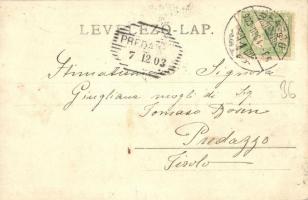 LEVELEZŐ-LAP.
PREDAZZO
7 12 03
Stimatissima Signora
Giugliana moglie di Sig
Tomaso
Predazzo
Tirolo
36